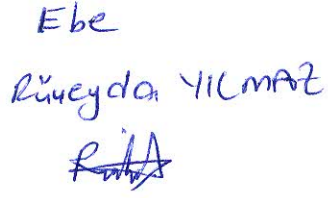 Ebe
Rüveyda YILMAZ